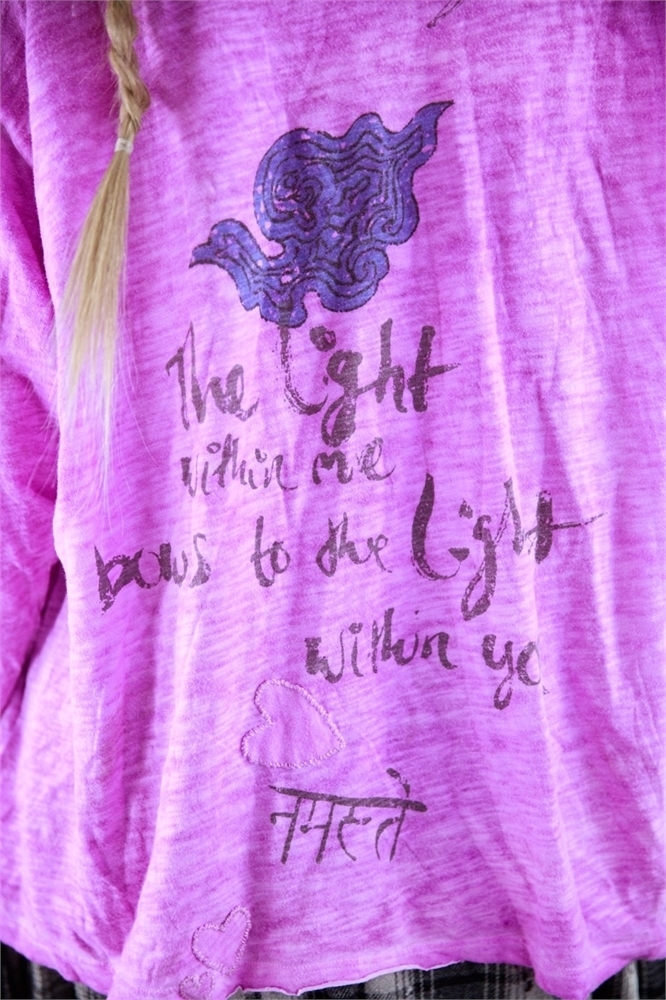 The Light
within me
bows to the Light
within yo
नमस्ते